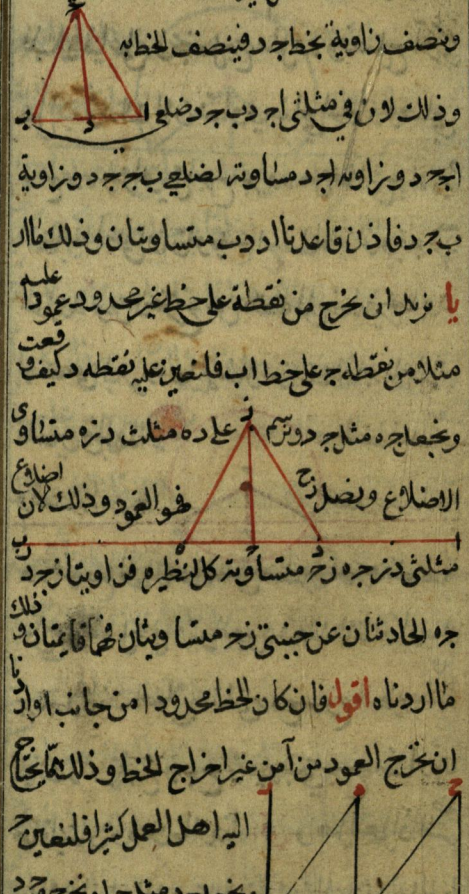 وننصف زاوية بخط جد فينصف الخط به
وذلك لان في مثلثى اجد بجد ضلعى
اجـ جد وزاويه اجد مساوية لضلعى بجـ جد وزاوية
بجد فاذن قاعدتا اد دب متساويتان وذلك ما ار
يا نريد ان نخرج من نقطة على خط غير محدود عمودا عليه
مثلا من نقطه جـ على خط اب فلنعين عليه نقطه د كيف وقعت
ونجعل جه مثل جد ونرسم على ده مثلث دزه متساوى
الاضلاع ونصل زجـ فهو العمود وذلك لان اضلاع
مثلثى دزجـ هزجـ متساوية كل لنظيره فزاويتا زجد
زجه الحادثتان عن جنبتى زجـ متساويتان فهما قايمتان وذلك
ما اردناه اقول فان كان الخط محدودا من جانب ا واردنا
ان نخرج العمود من آ من غير اخراج الخط وذلك مما يحتاج
اليه اهل العمل كثيرا فلنعين جـ